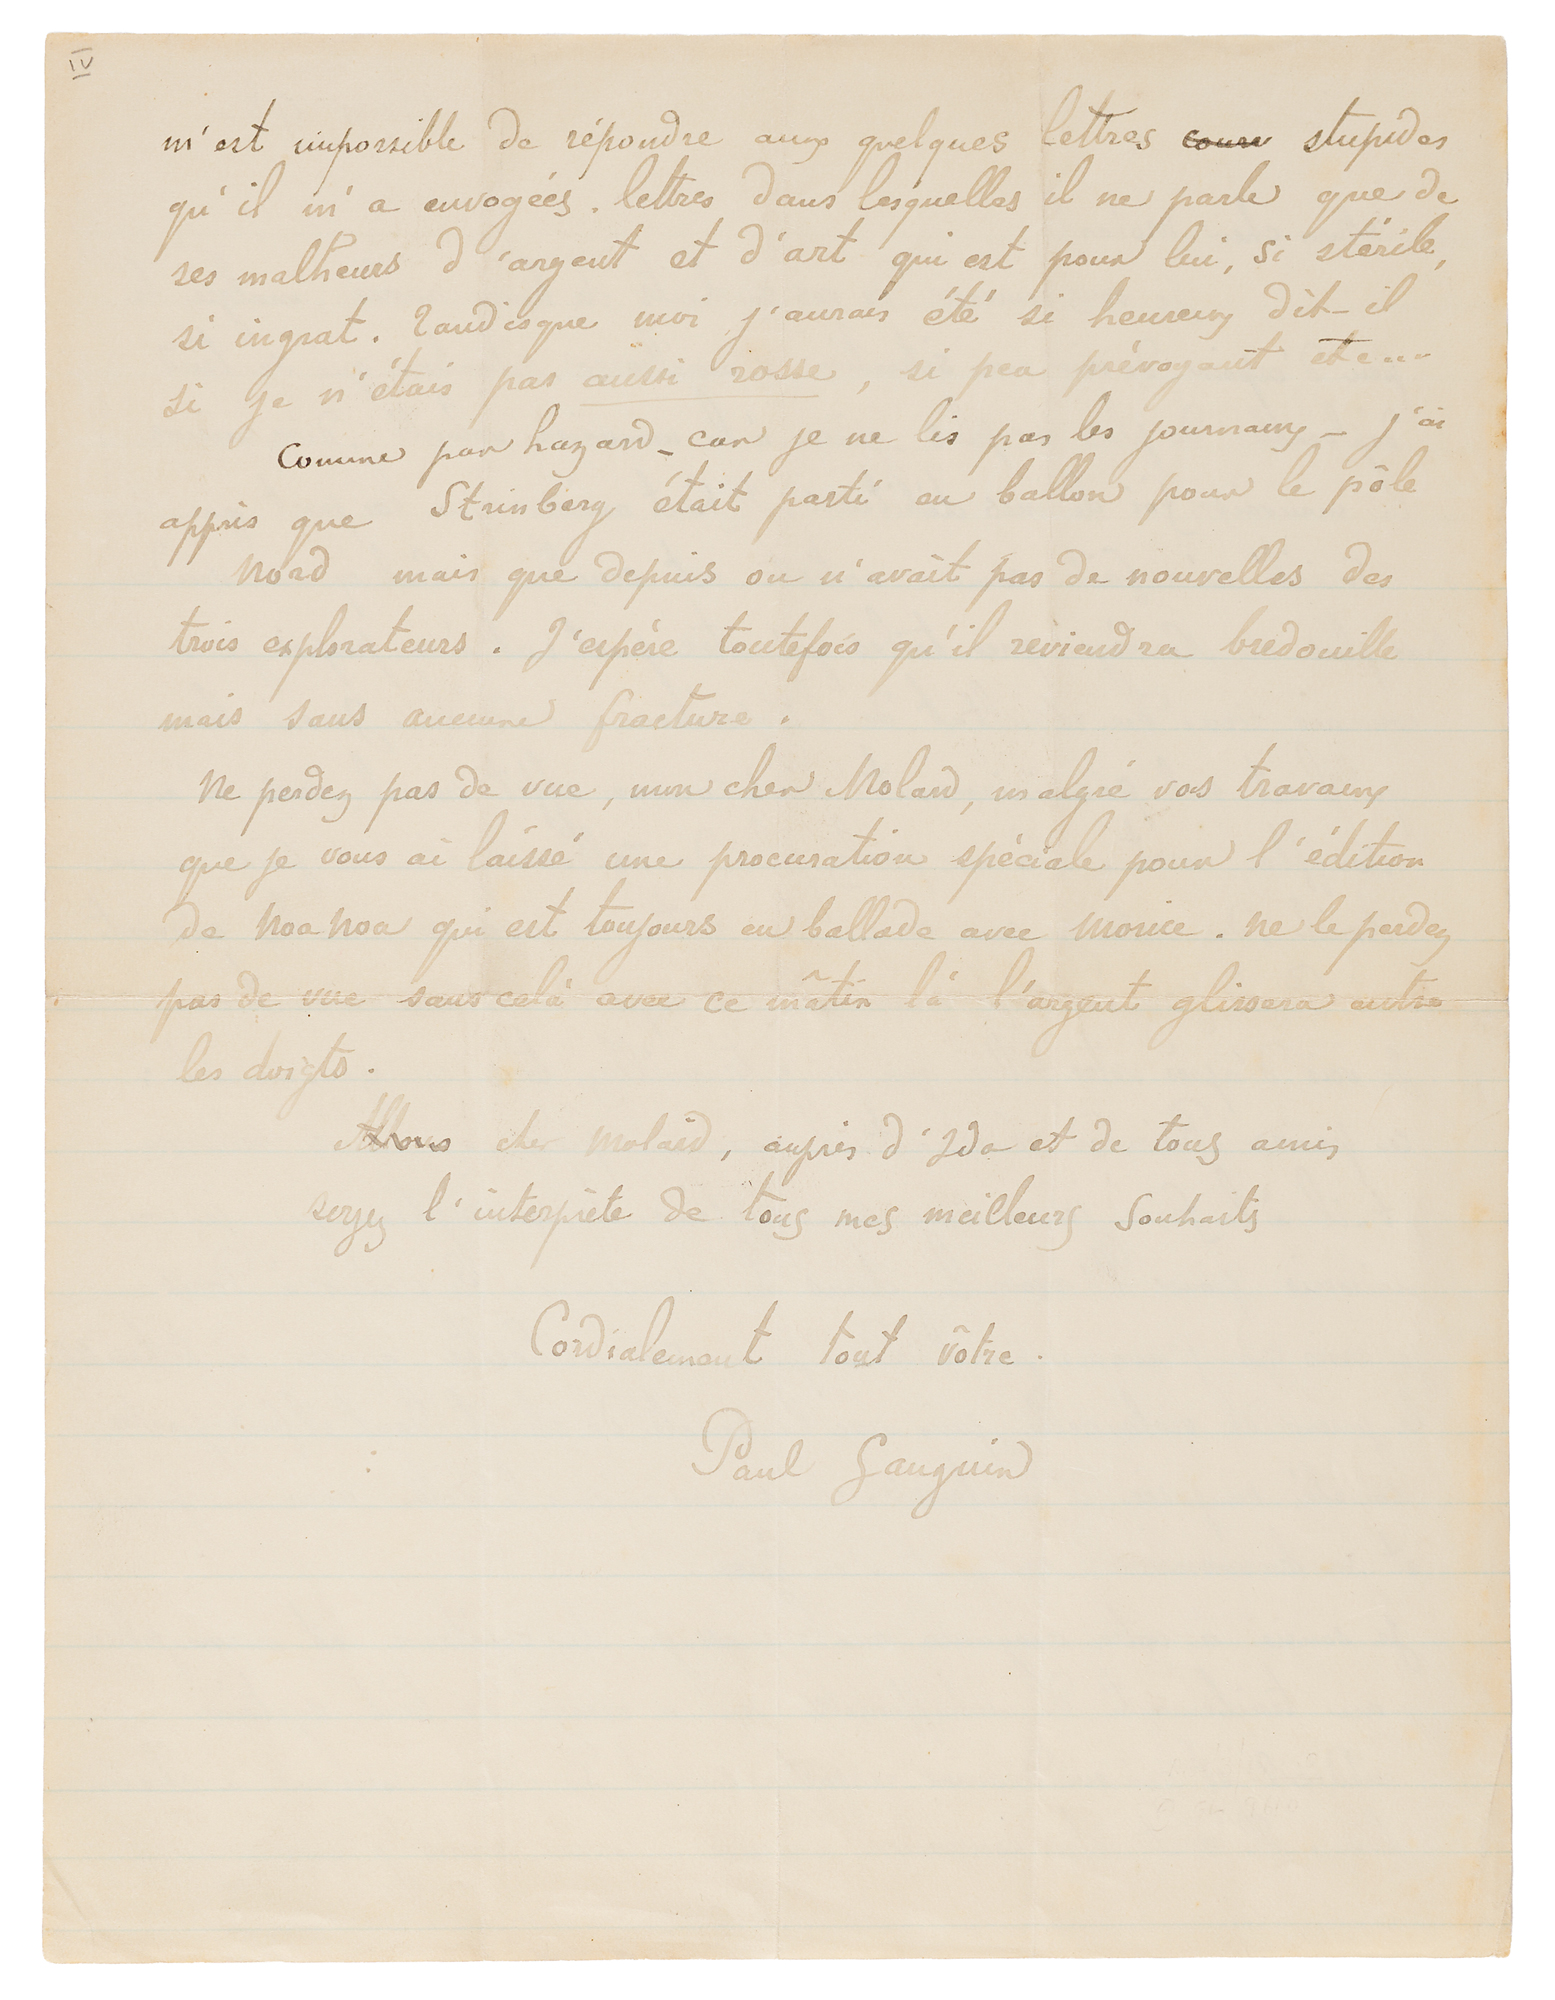 IV
m'est impossible de répondre aux quelques lettres stupides
qu'il m'a envoyées. lettres dans lesquelles il ne parle que de
ses malheurs d'argent et d'art qui est pour lui, si stérile,
si ingrat. Tandisque moi j'aurais été si heureux dit-il
si je n'étais pas aussi rosse, si peu prévoyant etc...
Comme par hazard - car je ne lis pas les journaux - j'ai
appris que Strinberg était parti en ballon pour le pôle
Nord mais que depuis on n'avait pas de nouvelles des
trois explorateurs. J'espère toutefois qu'il reviendra bredouille
mais sans aucune fracture.
Ne perdez pas de vue, mon cher Molard, malgré vos travaux
que je vous ai laissé une procuration spéciale pour l'édition
de Noa Noa qui est toujours en ballade avec Morice. Ne le perdez
pas de vue sans celà avec ce mâtin là l'argent glissera entre
les doigts.
Allons cher Molard, auprès d'Ida et de tous amis
soyez l'interprète de tous mes meilleurs souhaits
Cordialement tout vôtre.
Paul Gauguin